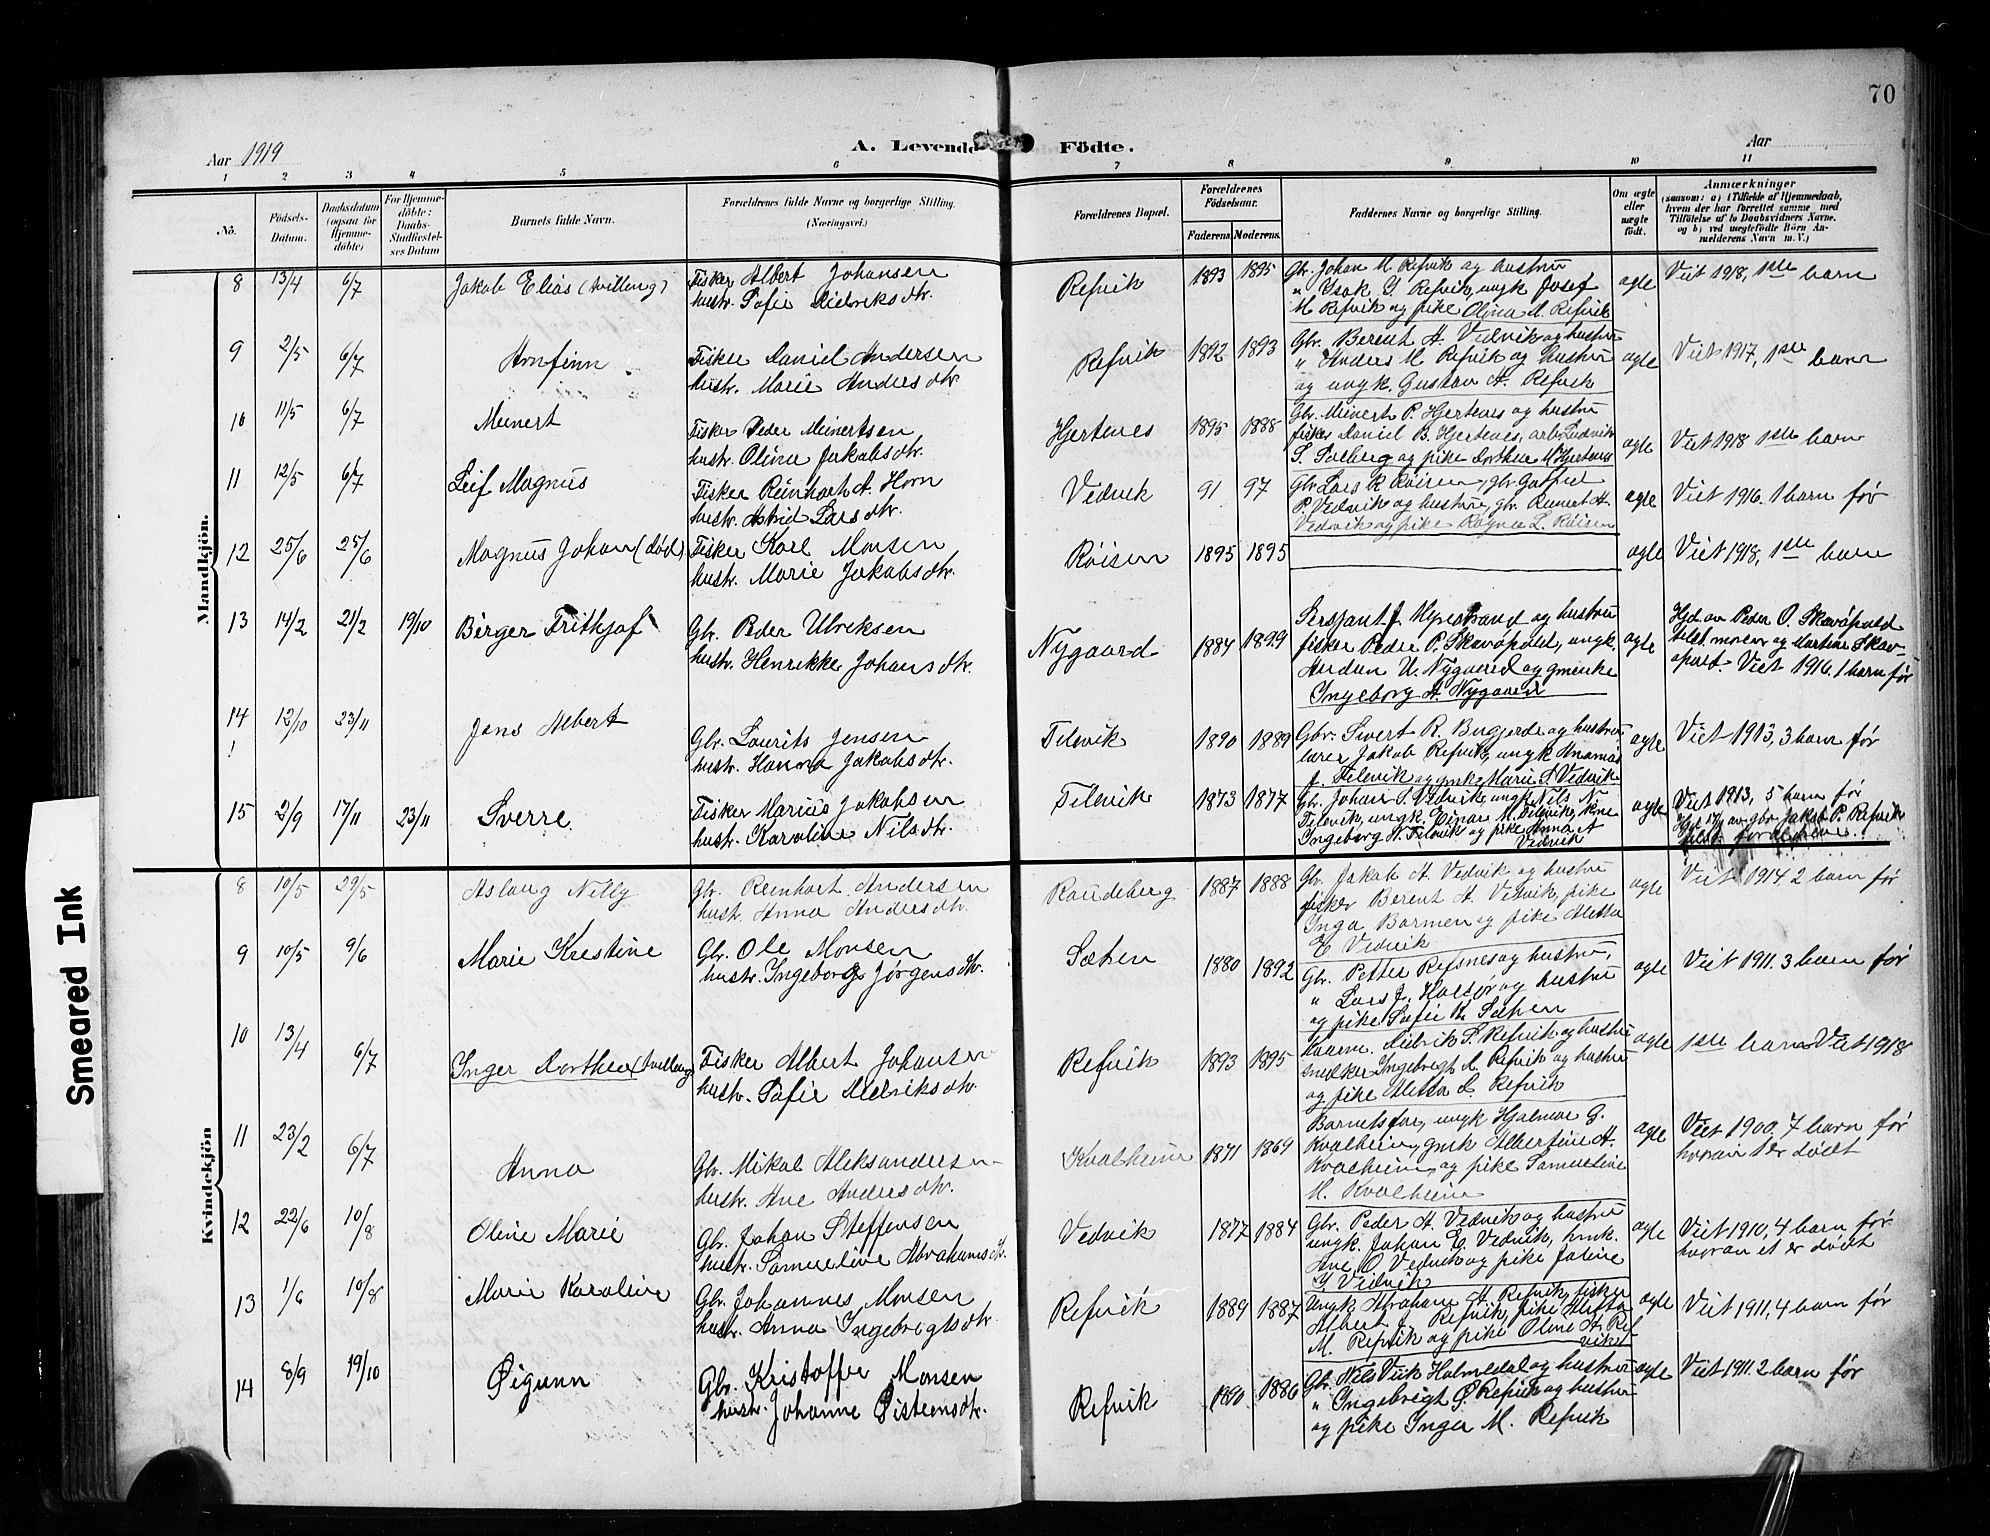 70
Aar 1919
A. Levende Födte.
Aar
1 2 3 4 5 6 7 8 9 10 11
No.
Födsels-Datum.
Daabsdatum (ogsaa for Hjemme-döbte)
For Hjemme-döbte: Daabs-Stadfæstel-ses Datum
Barnets fulde Navn.
Forældrenes fulde Navne og borgerlige Stilling. (Næringsvei.)
Forældrenes Bopæl.
Forældrenes Födselsaar.
Faderens. Moderens.
Faddernes Navne og borgerlige Stilling.
Om ægte eller uægte födt.
Anmærkninger
(saasom: a) i Tilfælde af Hjemmedaab,
hvem der har forrettet samme med
Tilföielse af to Daabsvidners Navne,
og b) ved uægtefödte Börn An-
melderens Navn m. V.)
Mandkjön.
8 13/4 6/7 Jakob Elias (tvilling) Fisker Albert Johansen Refvik 1893 1895 Gbr. Johan M. Refvik og hustru ægte Viet 1918, 1ste barn
hustr. Sofie Didriksdtr. " Isak S. Refvik, ungk Josef
M. Refvik og pike Olina A. Refvik
9 2/5 6/7 Arnfinn Fisker Daniel Andersen Refvik 1892 1893 Gbr. Berent A. Vedvik og hustru ægte Viet 1917, 1ste barn
hustr. Marie Andersdtr. " Anders M. Refvik og hustru
og ungk. Gustav A. Refvik
10 11/5 6/7 Meinert Fisker Peder Meinertsen Hjertenes 1895 1888 Gbr. Meinert P. Hjertenes og hustru ægte Viet 1918 1ste barn
hustr. Olina Jakobsdtr. fisker Daniel B. Hjertenes, arb. Ludvik
S. Solberg og pike Dorthea M. Hjertenes
11 12/5 6/7 Leif Magnus Fisker Reinhart A. Horn Vedvik 91 97 Gbr. Lars R. Røisen, gbr. ægte Viet 1916. 1 barn før
hustr. Astrid Larsdtr. P. Vedvik og hustru, gbr. A.
Vedvik og pike Ragna L. Røisen
12 25/6 25/6 Magnus Johan (død) Fisker Karl Monsen Røisen 1895 1895 ægte Viet 1918, 1ste barn
hustr. Marie Jakobsdtr.
13 14/2 21/2 19/10 Birger Frithjof Gbr. Peder Ulriksen Nygaard 1884 1899 Sersjant J. Myrestrand og hustru ægte Hjd. av Peder O. Skavøpold
hustr. Henrikke Johansdtr. fisker Peder P. Skavøpold, ungk. tilst. moren og Martine Skav-
U. Nygaard og gmpike øpold. Viet 1916. 1 barn før
Ingeborg A. Nygaard
14 12/10 23/11 Jens Albert Gbr. Laurits Jensen Tilevik 1890 1889 Gbr. Sivert R. og hustru ægte Viet 1913, 3 barn før
hustr. Hanna Jakobsdtr. lærer Jakob Refvik, ungk
J. Tilevik og gmk Marie S. Vedvik
15 2/9 17/11 23/11 Sverre Fisker Marius Jakobsen Tilevik 1873 1877 Gbr. Johan S. Vedvik, ungk Nils N. ægte Viet 1913, 5 barn før
hustr. Karoline Nilsdtr. Tilevik, ungk. Einar M. Tilevik, Hjd. 17/11 av gbr. Jakob P. Refvik
Ingeborg N. Tilevik og pike Anna A. tilst. forældrene.
Vedvik
Kvindekjön
8 10/5 29/5 Aslaug Nilly Gbr. Reinhart Andersen Raudeberg 1887 1888 Gbr. Jakob A. Vedvik og hustru ægte Viet 1914 2 barn før
hustr. Anna Andersdtr. fisker Berent A. Vedvik, pike
Inga Barmen og pike Aletta
E. Vedvik
9 10/5 9/6 Marie Kristine Gbr. Ole Monsen Sæten 1880 1892 Gbr. Petter Refsnes og hustru, ægte Viet 1911. 3 barn før
hustr. Ingeborg Jørgensdtr. " Lars J. og hustru
og pike Sofie K. Sæten
10 13/4 6/7 Inger Dorthea (tvilling) Fisker Albert Johansen Refvik 1893 1895 Didrik S. Refvik og hustru ægte 1ste barn Viet 1918
hustr. Sofie Didriksdtr. snedker Ingebrigt A. Refvik og hustru
og pike Aletta D. Refvik
11 23/2 6/7 Anna Gbr. Mikal Aleksandersen Kvalheim 1871 1869 Barnets far, ungk Hjalmar G. ægte Viet 1900, 7 barn før
hustr. Ane Andersdtr. Kvalheim, gmk Albertine A. hvorav 1 er dødt
Kvalheim og pike Samueline
M. Kvalheim
12 22/6 10/8 Oline Marie Gbr. Johan Steffensen Vedvik 1877 1884 Gbr. Peder A. Vedvik og hustru ægte Viet 1910, 4 barn før
hustr. Samueline Abrahamsdtr. ungk. Johan E. Vedvik, hmk. hvorav et er dødt
Ane O. Vedvik og pike Joline
J. Vedvik
13 1/6 10/8 Marie Karoline Gbr. Johannes Monsen Refvik 1889 1887 Ungk Abraham A. Refvik, fisker ægte Viet 1911, 4 barn før
hustr. Anna Ingebrigtsdtr. Albert J. Refvik, pike
M. Refvik og pike Oline A. Ref-
vik
14 8/9 19/10 Øigunn Gbr. Kristoffer Monsen Refvik 1890 1886 Gbr. Nils Viik Holmedal og hustru ægte Viet 1911 2 barn før
hustr. Johanne Øisteensdtr. " Ingebrigt P. Refvik og hustru
og pike Inga M. Refvik
Smeared Ink